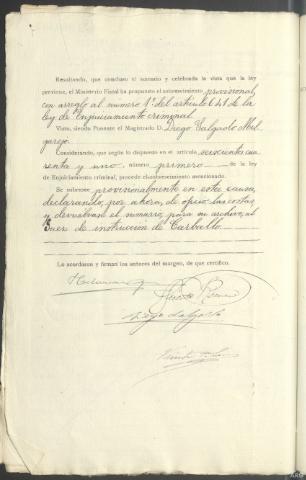 Resultando, que concluso el sumario y celebrada la vista que la ley
previene, el Ministerio Fiscal ha propuesto el sobreseimiento provisional,
con arreglo al numero 1º del artículo 641 de la
ley de Enjuiciamiento criminal.
Visto, siendo Ponente el Magistrado D. Diego Salgado Mel
garejo.
Considerando, que según lo dispuesto en el artículo seiscientos cua
renta y uno, número primero de la ley
de Enjuiciamiento criminal, procede el sobreseimiento mencionado.
Se sobresee provisionalmente en esta causa,
declarando, por ahora, de oficio las costas
y devuélvase el sumario, para su archivo, al
Juez de instrucción de Carballo.
Lo acordaron y firman los señores del margen, de que certifico.
Diego Salgado